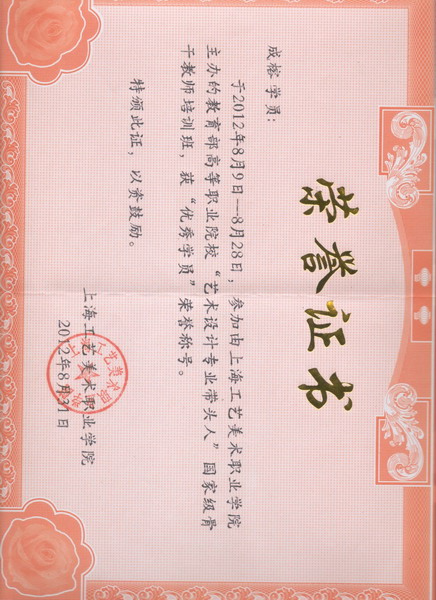 荣誉证书
成榕学员：
于2012年8月9日—8月28日，参加由上海工艺美术职业学院
主办的教育部高等职业院校“艺术设计专业带头人”国家级骨
干教师培训班，获“优秀学员”荣誉称号。
特颁此证，以资鼓励。
上海工艺美术职业学院
2012年8月31日